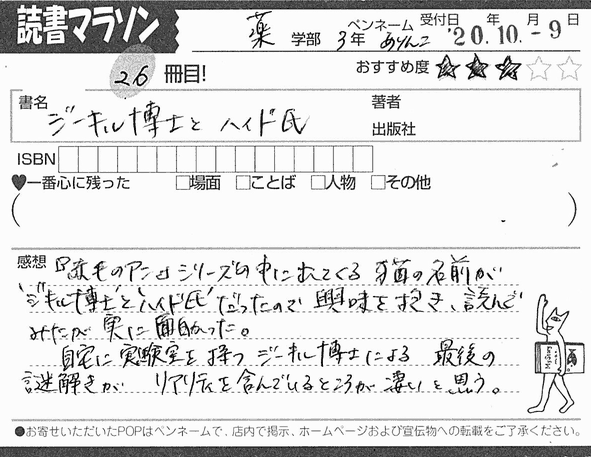 読書マラソン
薬 学部 3年 ペンネーム ありんこ 受付日 年 月 日 '20.10.-9
26 冊目! おすすめ度 ★★★☆☆
書名 ジーキル博士とハイド氏
著者
出版社
ISBN
♥一番心に残った □場面 □ことば □人物 □その他
( )
感想 『赤毛のアン』シリーズの中に出てくる 猫の名前が
"ジキル博士"と"ハイド氏"だったので 興味を抱き、読んで
みたが 実に面白かった。
自宅に実験室を持つ ジーキル博士による 最後の
謎解きが リアリティを含んでいるところが凄いと思う。
●お寄せいただいたPOPはペンネームで、店内で掲示、ホームページおよび宣伝物への転載をご了承ください。